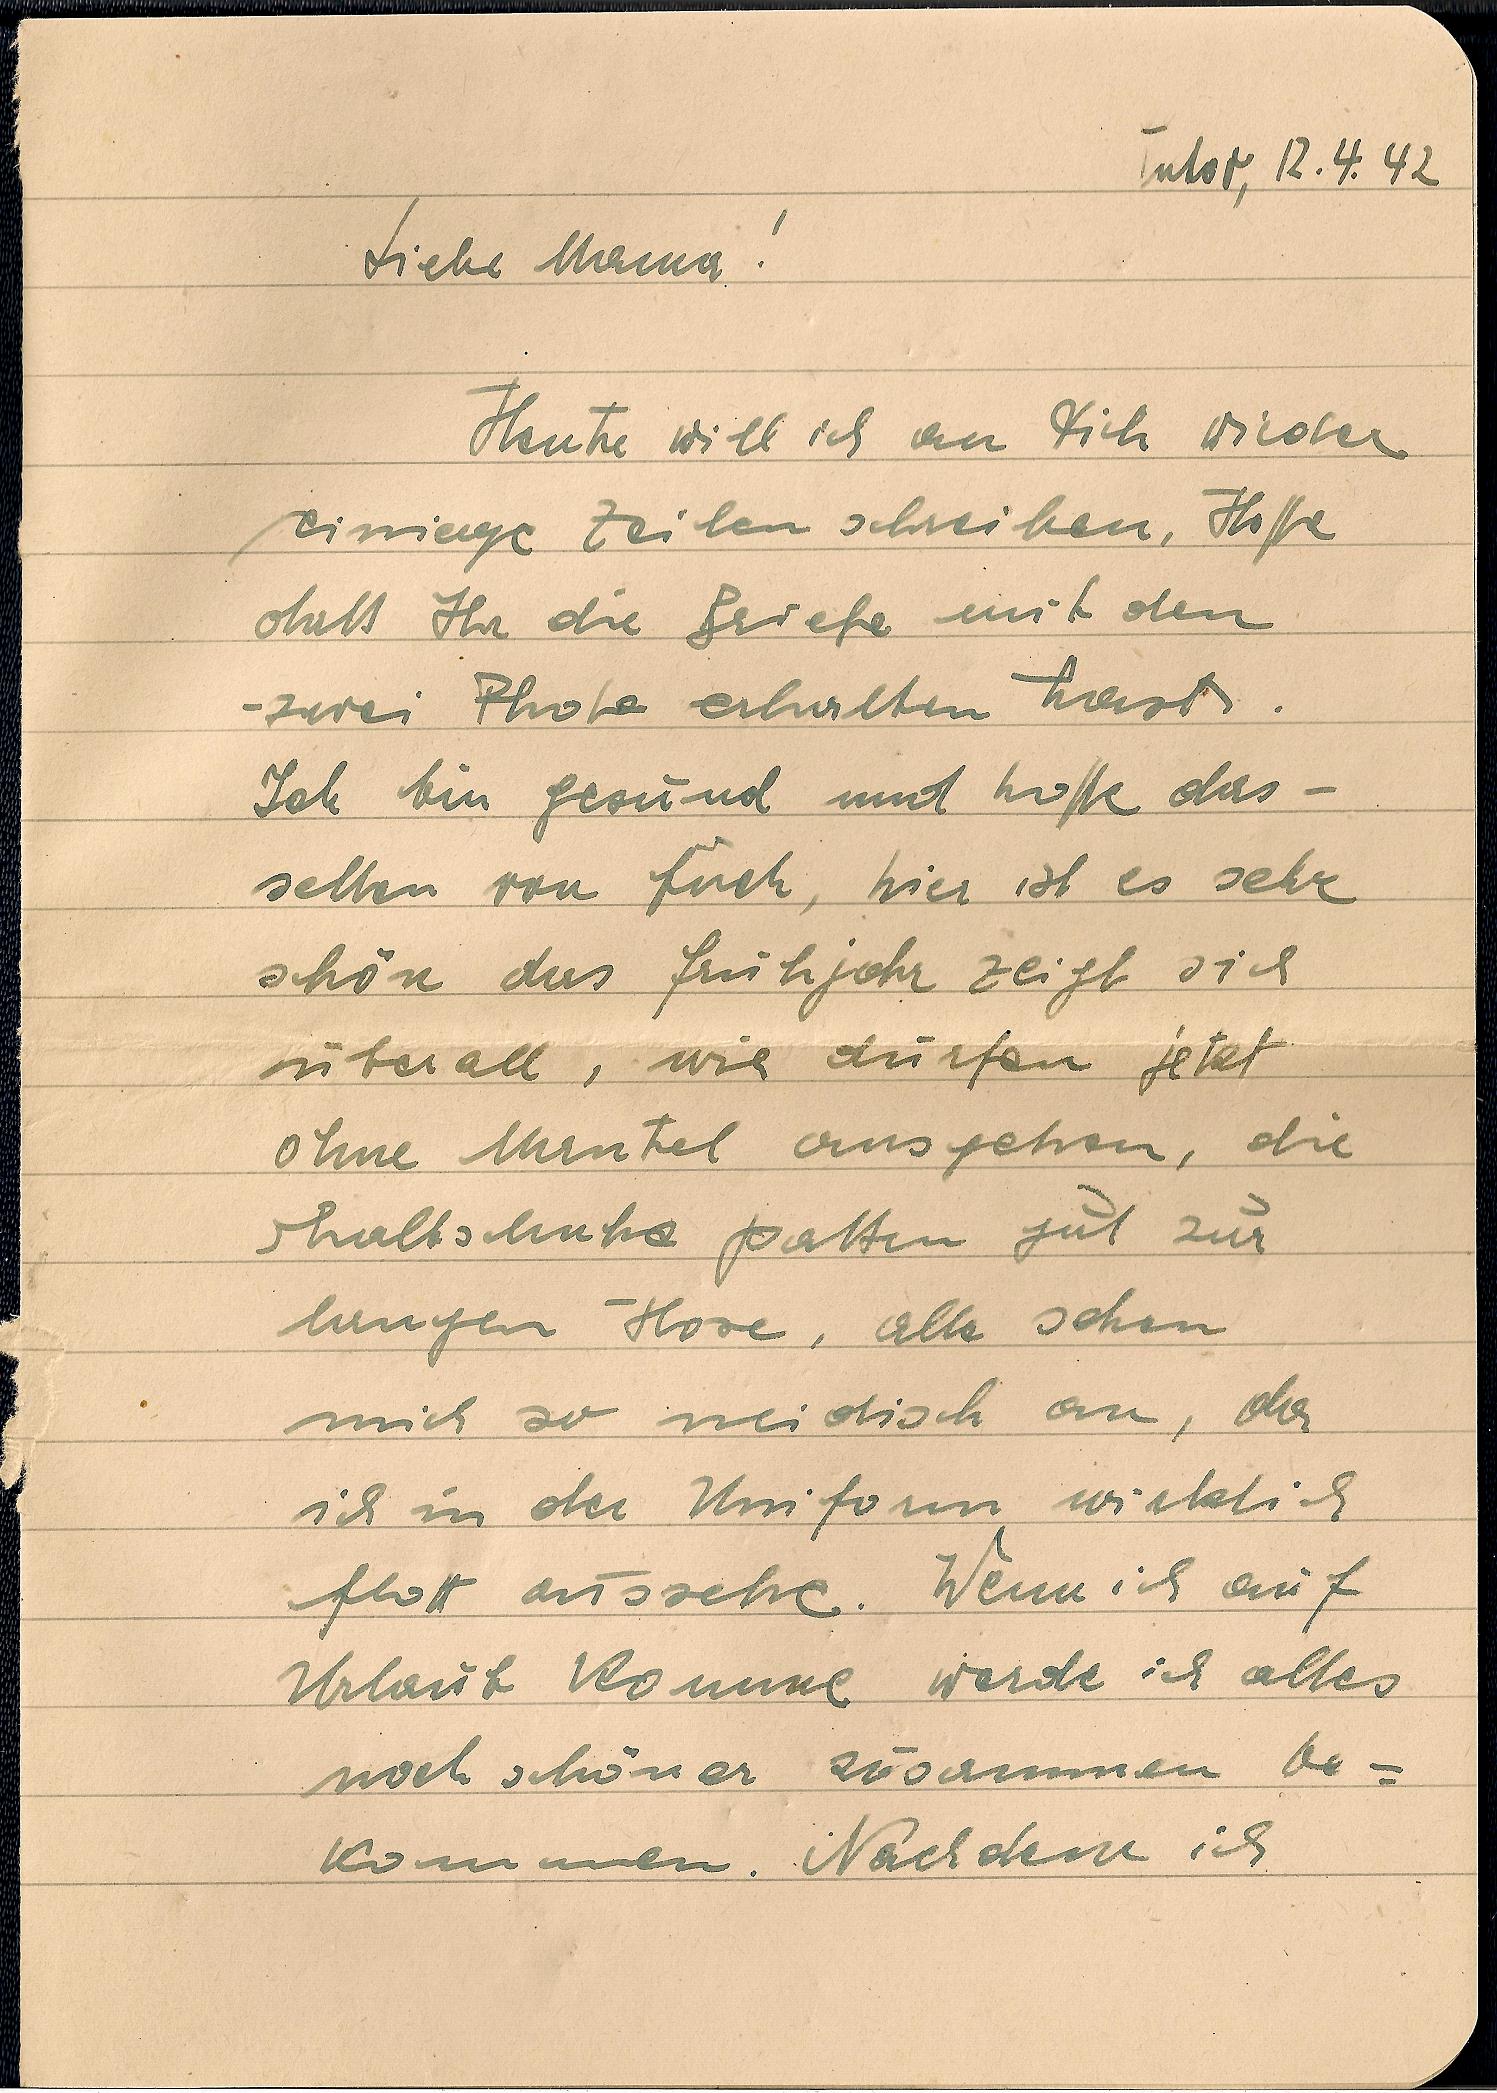 12.4.42
Liebe Mama!
Heute will ich an Dich wieder
einiege Zeilen schreiben, Hoffe
daß Ihr die Briefe mit den
zwei Photo erhalten hast.
Ich bin gesund und hoffe das-
selben von Euch, hier ist es sehr
schön das frühjahr zeigt sich
überall, wir dürfen jetzt
ohne Mantel ausgehen, die
Halbschuhe paßen gut zur
langen Hose, alle sehen
mich so neidisch an, da
ich in der Uniform wirklich
flott aussehe. Wenn ich auf
Urlaub komme werde ich alles
noch schöner zusammen be=
kommen. Nachdem ich